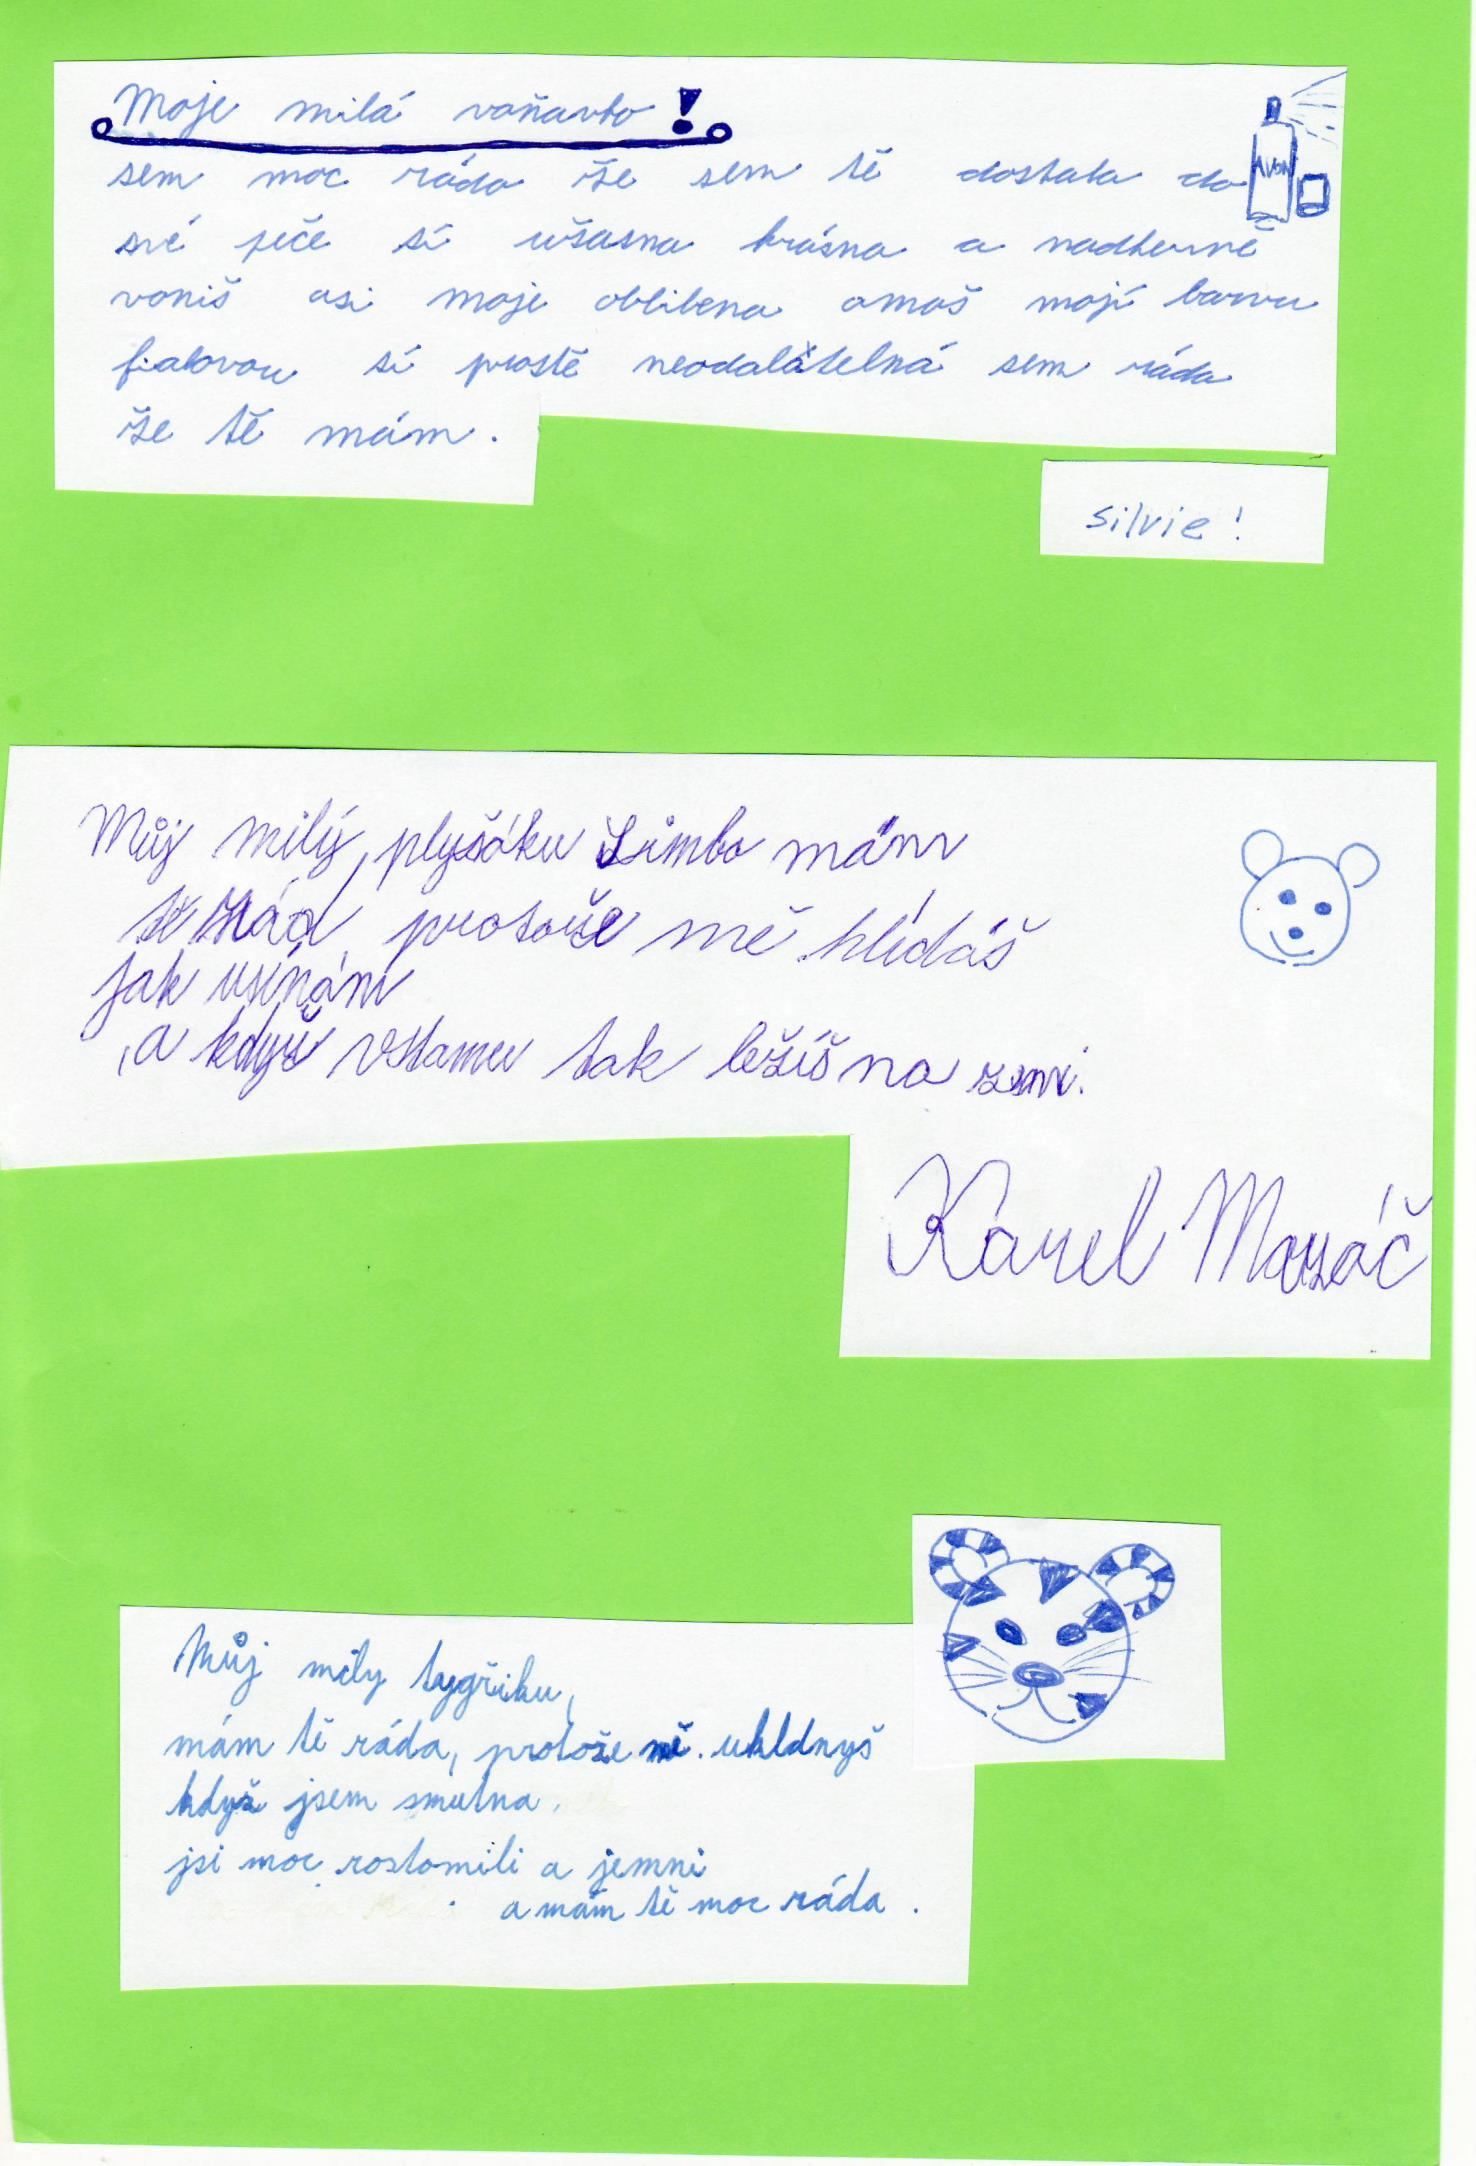 Moje milá voňavko!
sem moc ráda že sem tě dostala do
své péče sí ušasna krásna a nadherně
voniš asi moje oblibena amaš mojí barvu
fialovou sí prostě neodalatelná sem ráda
že tě mám.
AVON
silvie!
Můj milý plyšáku Limbo mám
tě rád, protože mě hlídáš
jak usínám
, a když vstanu tak ležíš na zemi.
Karel Mazáč
Můj mily tygřiku,
mám tě ráda, protože mě ukldnyš
když jsem smutna.
jsi moc rostomili a jemni
a mám tě moc ráda.